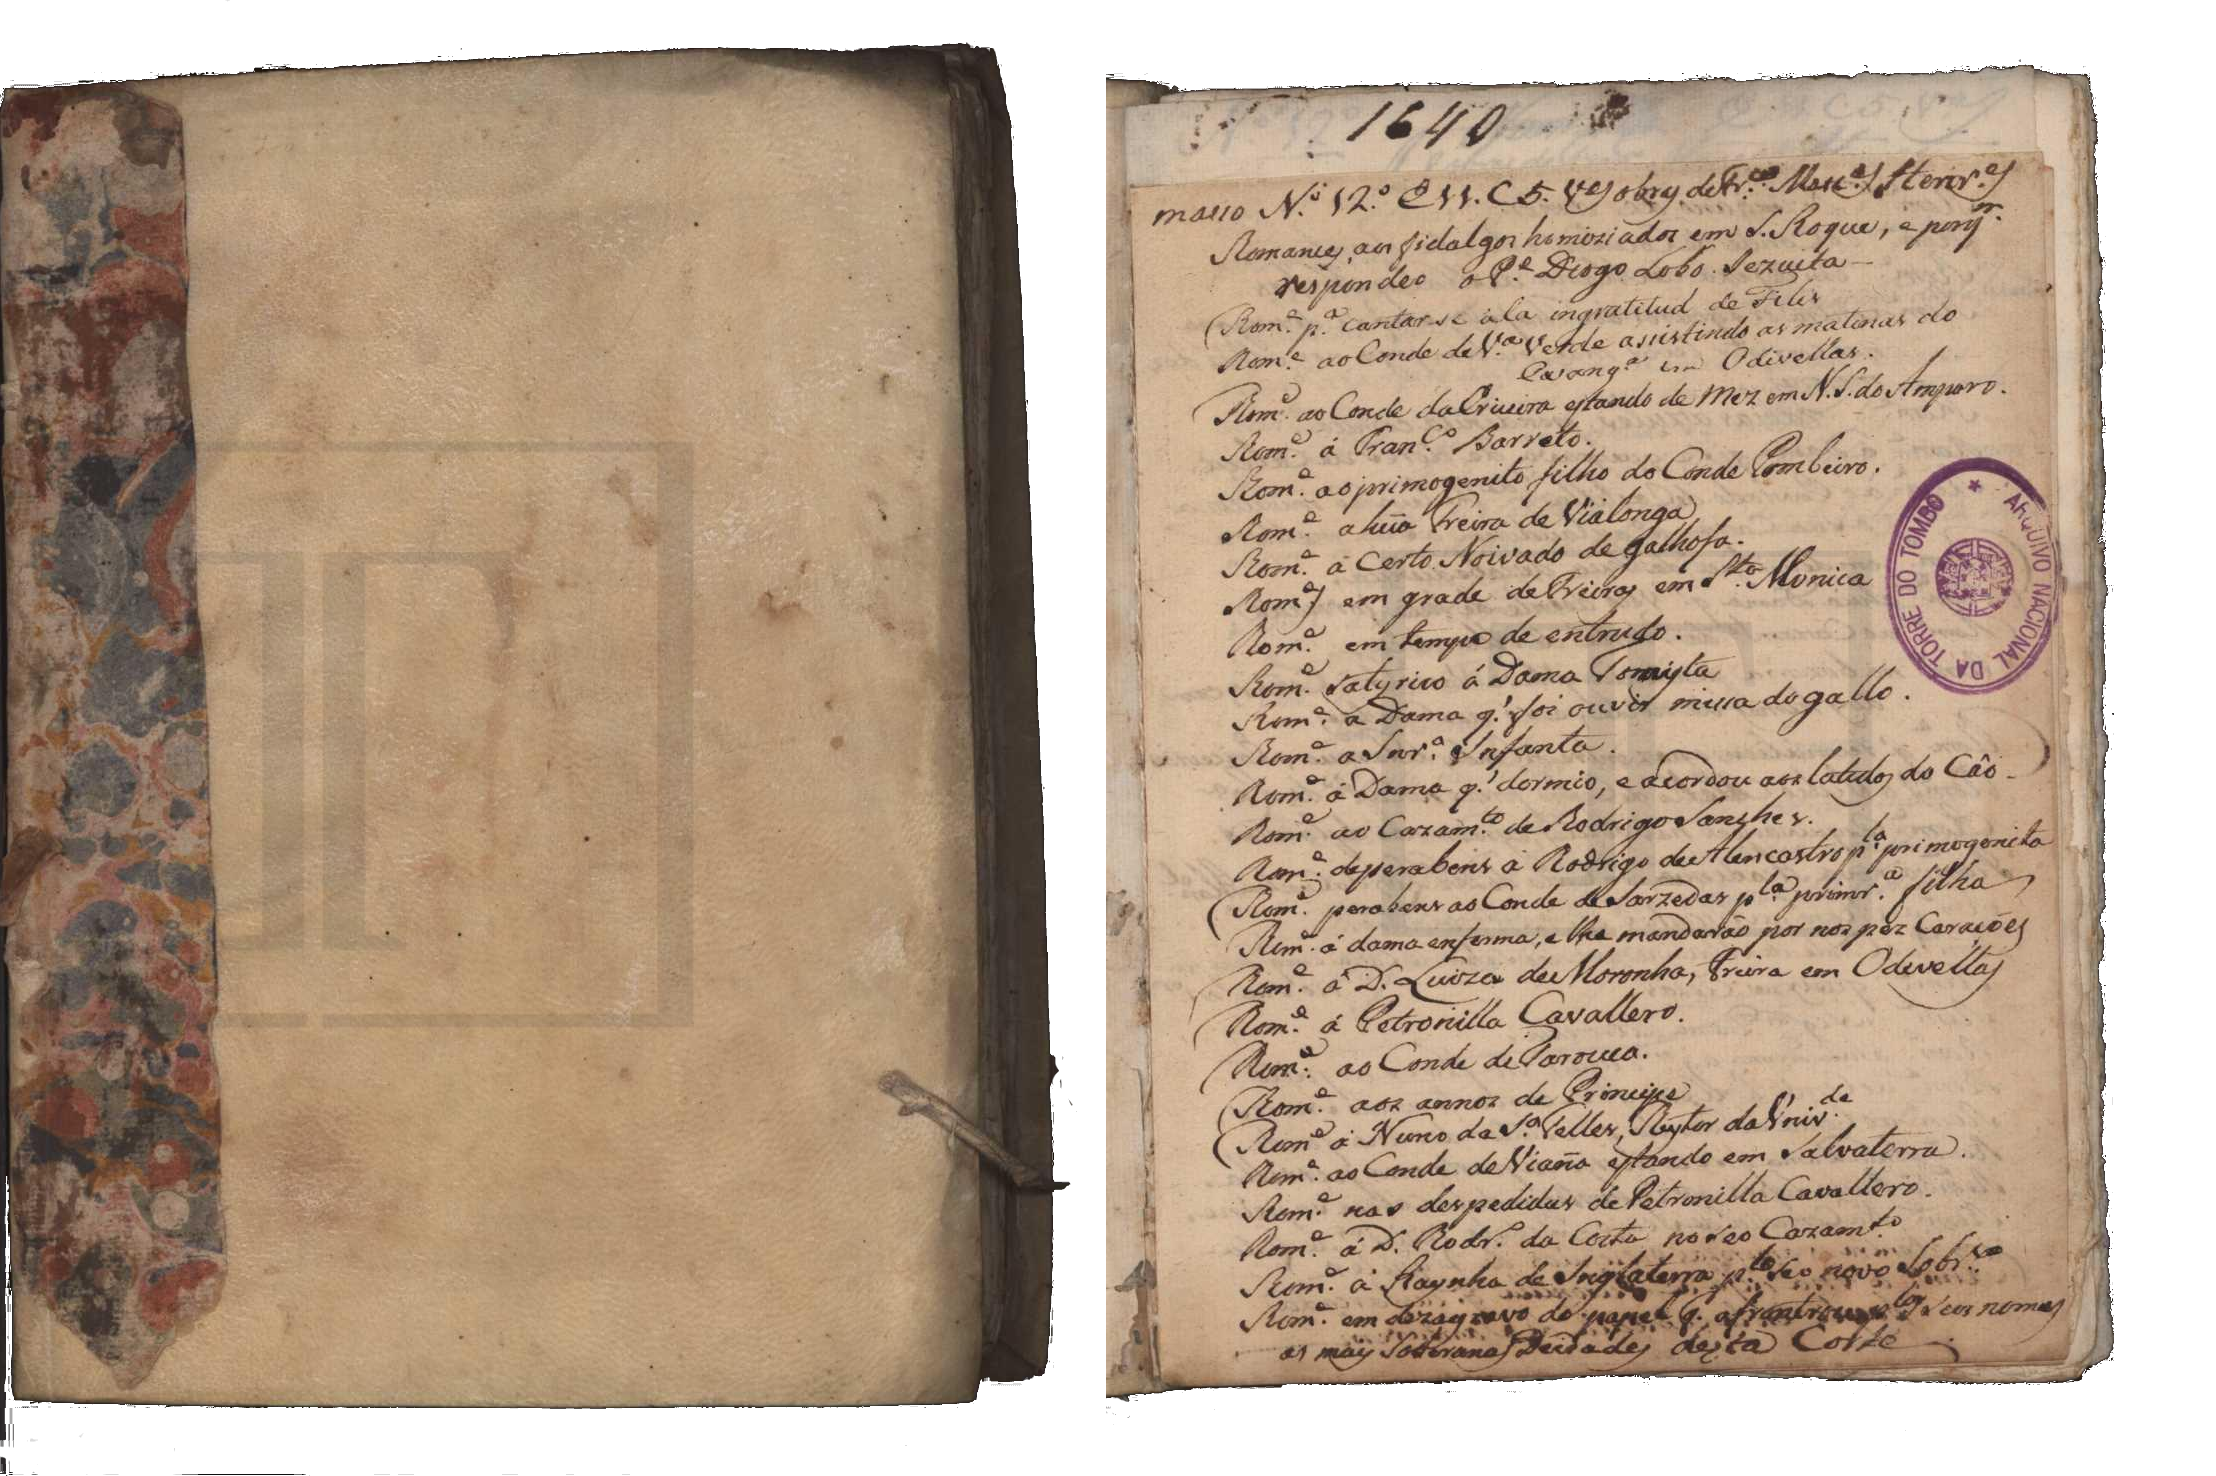 1640
masso N.º 12.º E 11. C 5. V.es obras de Fr.co Masc.as Henrr.es
Romances aos fidalgos homiziados em S. Roque, e porq.
respondeo o P.e Diogo Lobo Jezuita
Rom.e p.a cantarse a la ingratitud de Filis
Rom.e ao Conde de V.a Verde assistindo as matinas do
Evang.a em Odivellas.
Rom.e ao Conde da Ericeira estando de Mez em N. S. do Amparo.
Rom.e á Fran.co Barreto.
Rom.e ao primogenito filho do Conde Pombeiro.
Rom.e a hũa Freira de Vialonga
Rom.e á Certo Noivado de galhofa.
Rom.es em grade de Freiras em S.ta Monica
Rom.e em tempo de entrudo.
Rom.e satyrico á Dama Tomista
Rom.e a Dama q.' foi ouvir missa do gallo.
Rom.e a Snr.a Infanta.
Rom.e á Dama q.' dormio, e acordou aos latidos do Cão
Rom.e ao Cazam.to de Rodrigo Sanches.
Rom.e de parabens á Rodrigo de Alencastro p.la primogenita
Rom.e parabens ao Conde de Sarzedas p.la primr.a filha
Rom.e á dama enferma, e lhe mandarão por nos pez Corações
Rom.e á D. Luiza de Noronha, Freira em Odivellas
Rom.e á Petronilla Cavallero.
Rom.e ao Conde de Tarouca.
Rom.e aos annos do Principe
Rom.e á Nuno da S.a Telles, Reytor da Univ.de
Rom.e ao Conde de Viaña estando em Salvaterra.
Rom.e nas despedidas de Petronilla Cavallero.
Rom.e á D. Rodr.o da Costa no seo Cazam.to
Rom.e á Raynha de Inglaterra p.lo seo novo Sobr.o
Rom.e em dezagravo do papel q. afrontrou p.los seos nomes
as mais Soberanas Deidades desta Corte
ARQUIVO NACIONAL DA TORRE DO TOMBO